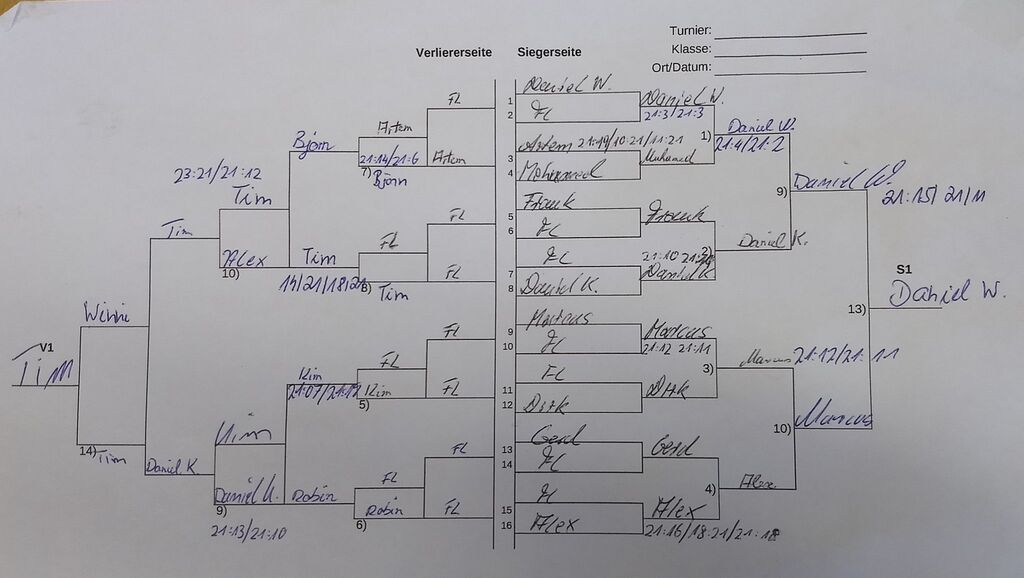 Turnier:
Klasse:
Ort/Datum:
Verliererseite Siegerseite
1 Daniel W.
2 FL
Daniel W.
21:3/21:3
3 Artem 21:19/10:21/11:21
4 Mohammed
Muhamed
1) Daniel W.
21:4/21:2
5 Frank
6 FL
Frank
7 FL
8 Daniel K.
21:10
Daniel K.
2) Daniel K.
9) Daniel W.
21:15/21/11
9 Marcus
10 FL
Marcus
21:12 21:11
11 FL
12 Dirk
Dirk
3) Marcus 21:12/21:11
13 Gerd
14 FL
Gerd
15 FL
16 Alex
Alex
21:16/18:21/21:18
4) Alex
10) Marcus
13)
S1
Daniel W.
FL
Artem
Artem
21:14/21:6
7) Björn
Björn
FL
FL
FL
8) Tim
Tim
23:21/21:12
Tim
10) Alex
Tim
FL
FL
FL
5) Kim
Kim
FL
FL
FL
6) Robin
Robin
9) Daniel K.
21:13/21:10
Daniel K.
14) Tim
V1
Tim